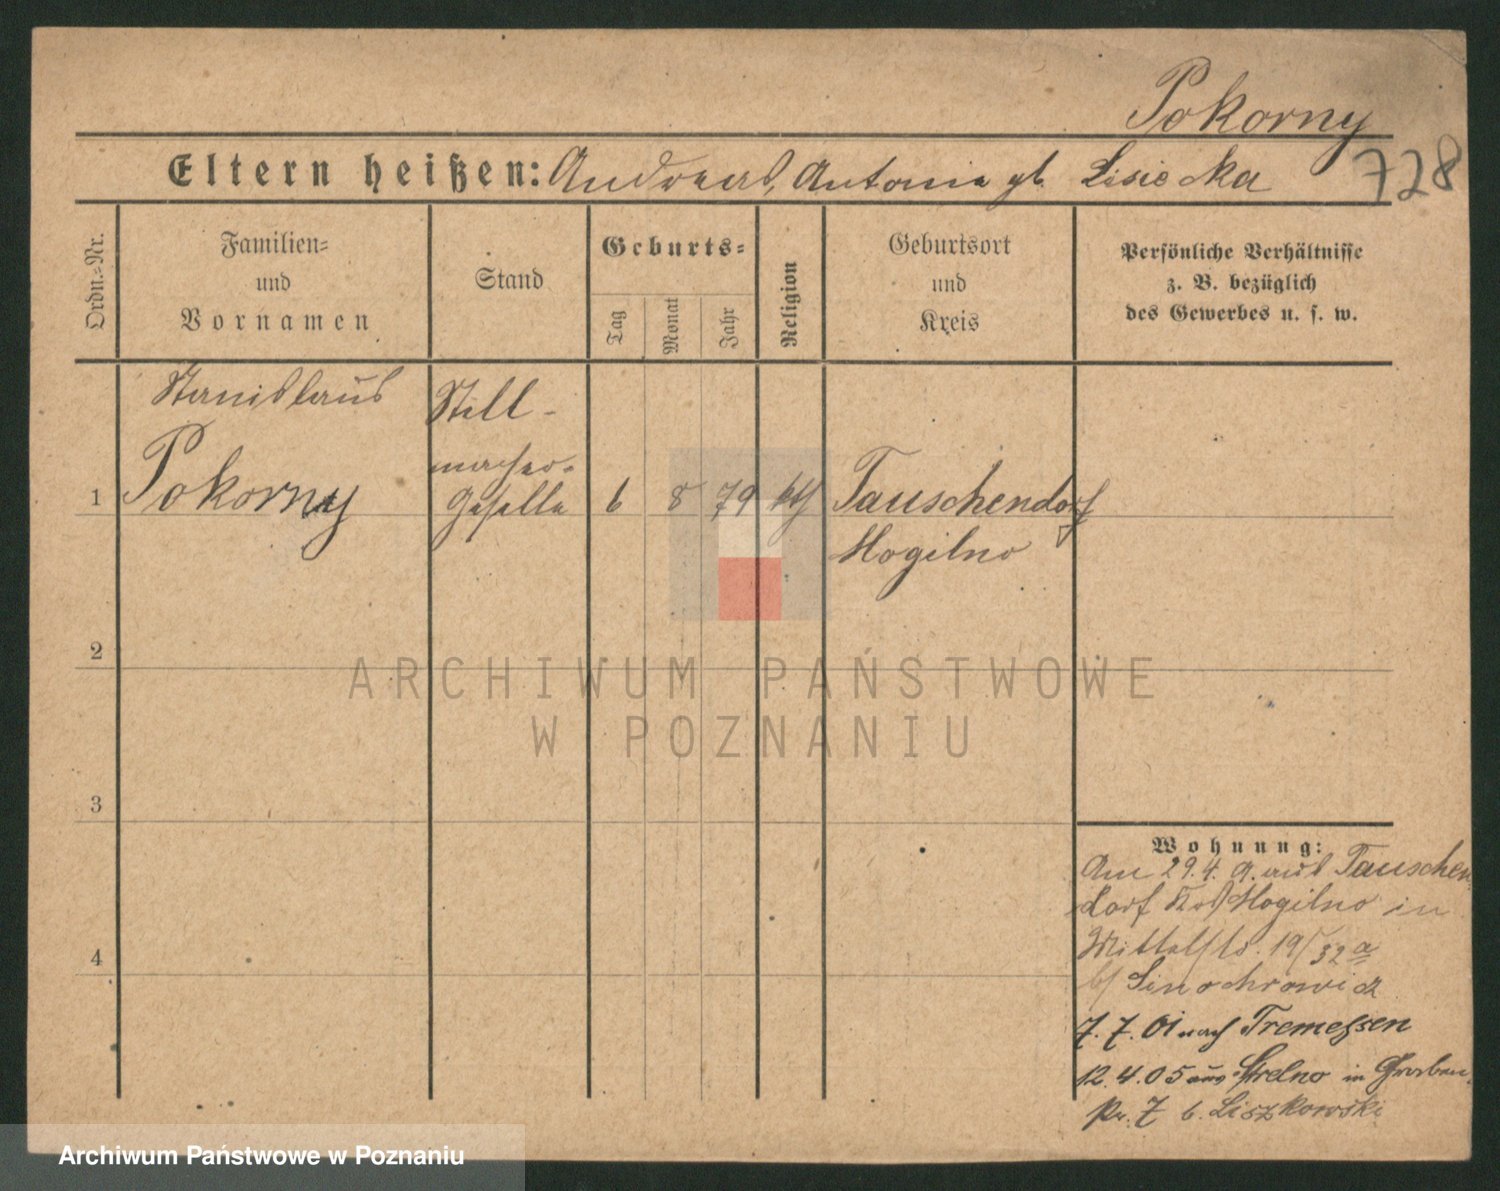 Pokorny
728
Eltern heißen: Andreas, Antonie gb. Lisiecka
Ordn.-Nr.
Familien-
und
Vornamen
Stand
Geburts-
Tag
Monat
Jahr
Religion
Geburtsort
und
Kreis
Persönliche Verhältnisse
z. B. bezüglich
des Gewerbes u. s. w.
Stanislaus
Still-
macher-
1 Pokorny Geselle 6 8 79 kth Tauschendorf
Mogilno
2
ARCHIWUM PAŃSTWOWE
W POZNANIU
3
Wohnung:
Am 29.4. aus Tauschen
dorf Mogilno in
4
Mittelstr. 19/32a
b/
7. 7. 01 nach Tremessen
12.4.05 aus Strelno in
7 b. Liszkowski
Archiwum Państwowe w Poznaniu